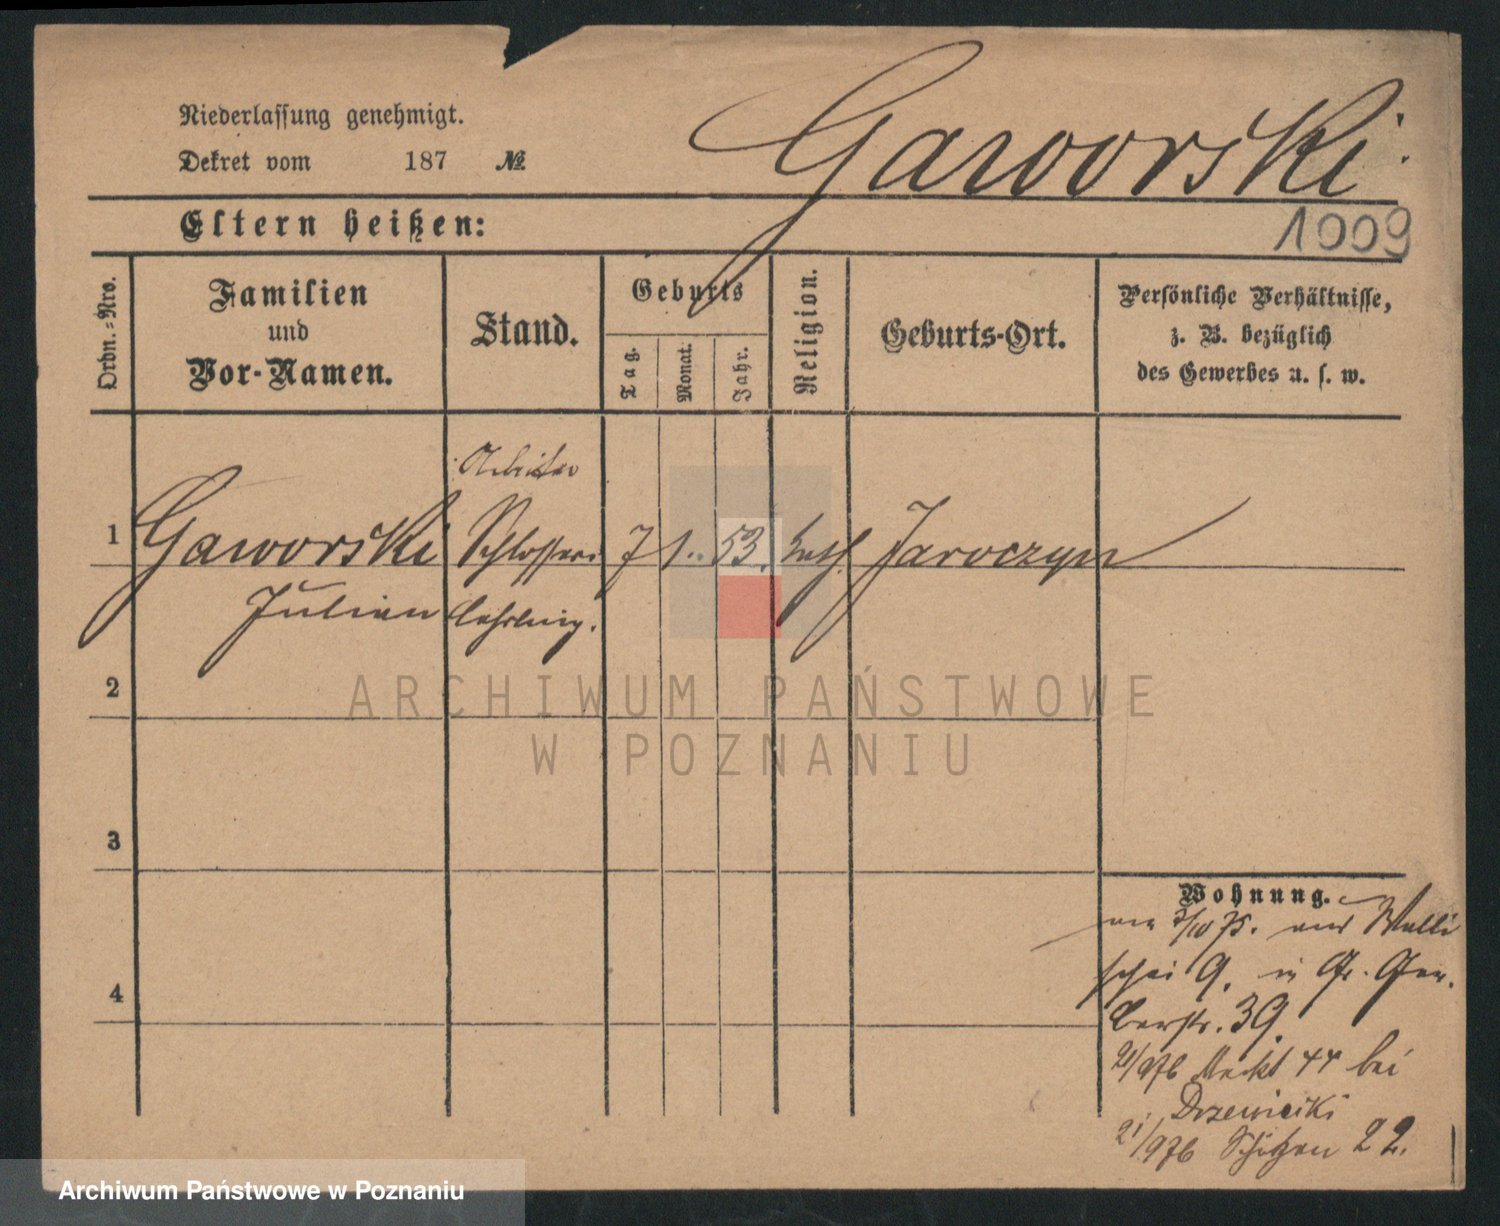 Gaworski.
Niederlassung genehmigt.
Dekret vom 187 №
1009
Eltern heißen:
Ordn.-Nro.
Familien
und
Vor-Namen.
Stand.
Geburts
Tag.
Monat.
Jahr.
Religion.
Geburts-Ort.
Persönliche Verhältnisse,
z. B. bezüglich
des Gewerbes u. s. w.
Arbeiter
1 Gaworski Schlosser 7 1. 53. kath. Jaroczyn
Julian lehrling.
2
3
4
Wohnung.
am 7/10 75. aus Walli
schei 9. in Gr. Ger.
berstr. 39.
Markt 44 bei
Drzewiecki
21/9 76 Schützen 22.
ARCHIWUM PAŃSTWOWE
W POZNANIU
Archiwum Państwowe w Poznaniu